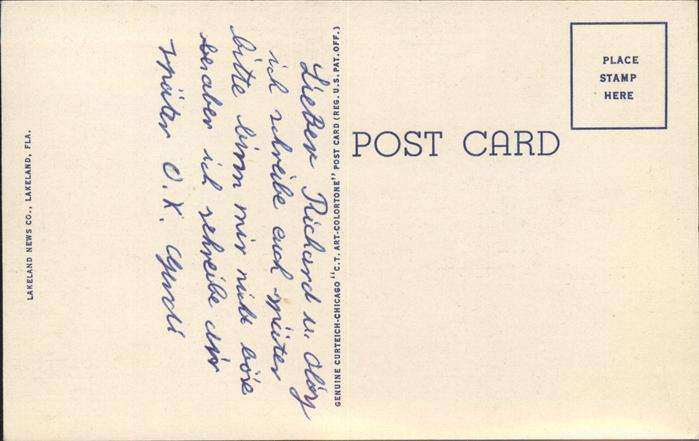 Lieber Richard u. Olög
ich schreibe euch später
bitte binn mir nicht böse
aber ich schreibe dir
später O.K. Gundi
POST CARD
PLACE
STAMP
HERE
GENUINE CURTEICH-CHICAGO "C.T. ART-COLORTONE" POST CARD (REG. U.S. PAT. OFF.)
LAKELAND NEWS CO., LAKELAND, FLA.